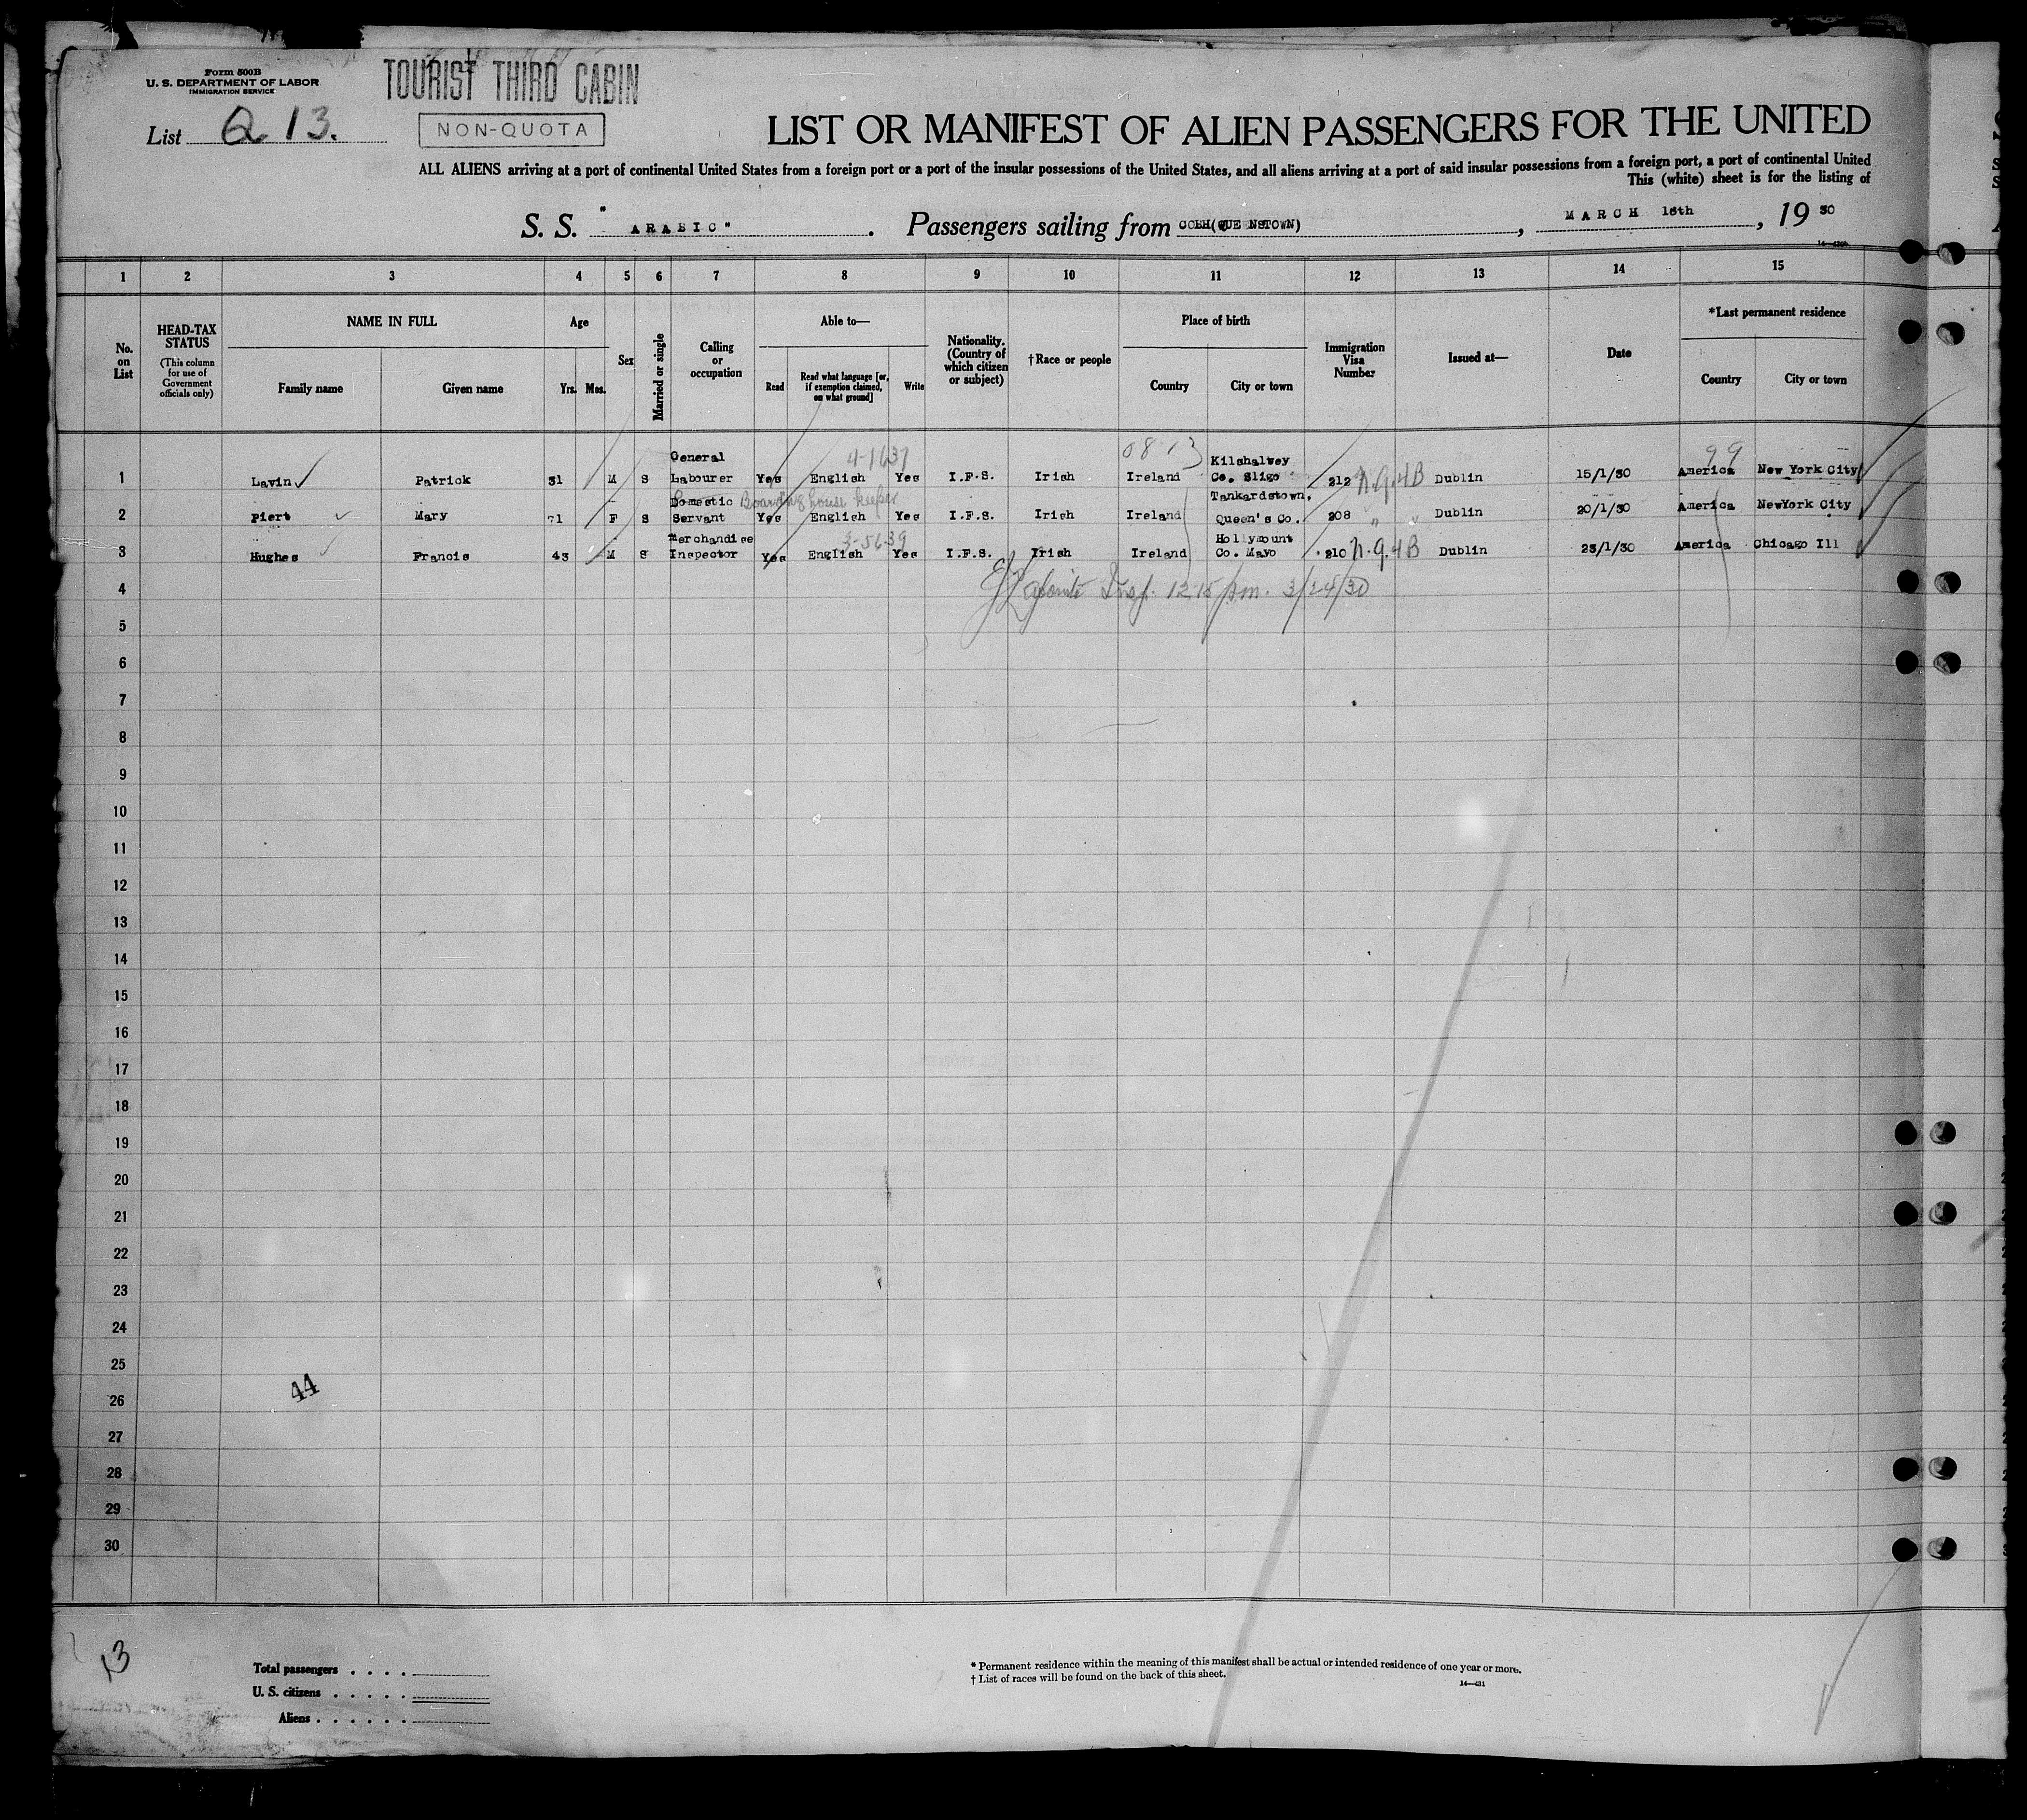 Form 500B
U. S. DEPARTMENT OF LABOR
IMMIGRATION SERVICE
TOURIST THIRD CABIN
List Q 13.
NON-QUOTA
LIST OR MANIFEST OF ALIEN PASSENGERS FOR THE UNITED
ALL ALIENS arriving at a port of continental United States from a foreign port or a port of the insular possessions of the United States, and all aliens arriving at a port of said insular possessions from a foreign port, a port of continental United
This (white) sheet is for the listing of
S. S. "ARABIC". Passengers sailing from COBH(QUE NSTOWN), MARCH 16th, 19 30
1 2 3 4 5 6 7 8 9 10 11 12 13 14 15
No. on List
HEAD-TAX STATUS
(This column for use of Government officials only)
NAME IN FULL
Family name Given name
Age
Yrs. Mos.
Sex
Married or single
Calling or occupation
Able to—
Read Read what language [or, if exemption claimed, on what ground] Write
Nationality. (Country of which citizen or subject)
†Race or people
Place of birth
Country City or town
Immigration Visa Number
Issued at—
Date
*Last permanent residence
Country City or town
General 4-1637 08 13 Kilshalvey 99
1 Lavin Patrick 31 M S Labourer Yes English Yes I.F.S. Irish Ireland Co. Sligo 212 N.Q.4B Dublin 15/1/30 America New York City
Domestic Boarding house keeper Tankardstown,
2 Piert Mary 71 F S Servant Yes English Yes I.F.S. Irish Ireland Queen's Co. 208 " " Dublin 20/1/30 America NewYork City
Merchandise 3-5639 Hollymount
3 Hughes Francis 43 M S Inspector Yes English Yes I.F.S. Irish Ireland Co. Mayo 210 N.Q.4B Dublin 23/1/30 America Chicago Ill
4 Insp. 12 15 p.m. 3/24/30
5
6
7
8
9
10
11
12
13
14
15
16
17
18
19
20
21
22
23
24
25
26 44
27
28
29
30
13
Total passengers . . . .
U. S. citizens . . . . .
Aliens . . . . . .
* Permanent residence within the meaning of this manifest shall be actual or intended residence of one year or more.
† List of races will be found on the back of this sheet.
14—431